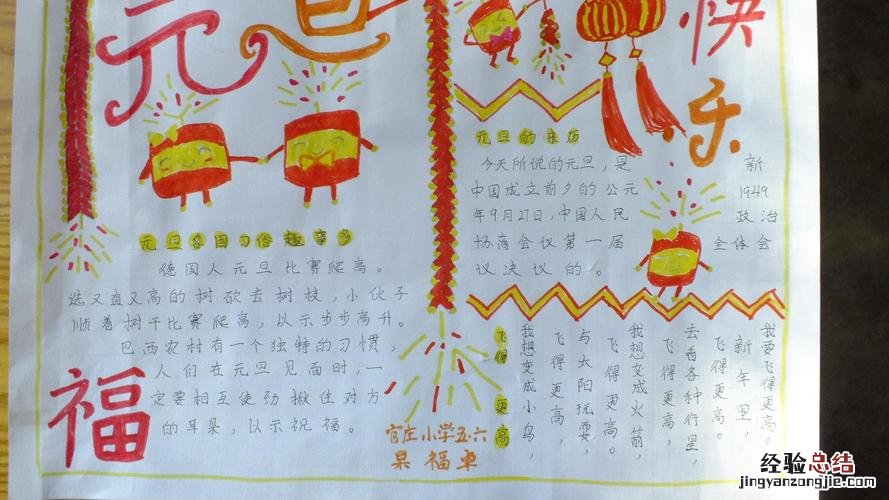 元旦
快乐
元旦各国习俗趣事多
德国人元旦比赛爬高。
选又直又高的树砍去树枝,小伙子
顺着树干比赛爬高,以示步步高升。
巴西农村有一个独特的习惯,
人们在元旦见面时,一
定要相互使劲揪住对方
的耳朵,以示祝福。
福
元旦的来历
今天所说的元旦,是 新
中国成立前夕的公元 1949
年9月27日,中国人民 政治
协商会议第一届 全体会
议决议的。
飞得更高
我要飞得更高。
新年里,
飞得更高。
去看各种行星,
飞得更高,
我想变成火箭,
飞得更高。
与太阳玩耍,
飞得更高,
我想变成小鸟,
官庄小学五.六
杲福卓
经验总结
jingyanzongjie.com